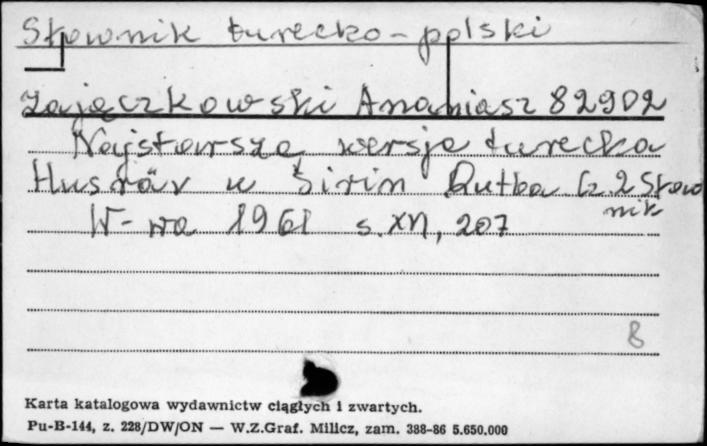 Słownik turecko-polski
Zajączkowski Ananiasz 82902
Najstarsza wersja turecka
Husräv u Širin Qutba Cz. 2 Słow
nik
W-wa 1961 s. XVI, 207
8
Karta katalogowa wydawnictw ciągłych i zwartych.
Pu-B-144, z. 228/DW/ON — W.Z.Graf. Milicz, zam. 388-86 5.650.000